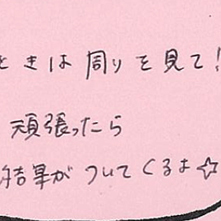 ときは周りを見て！
頑張ったら
結果がついてくるよ☆